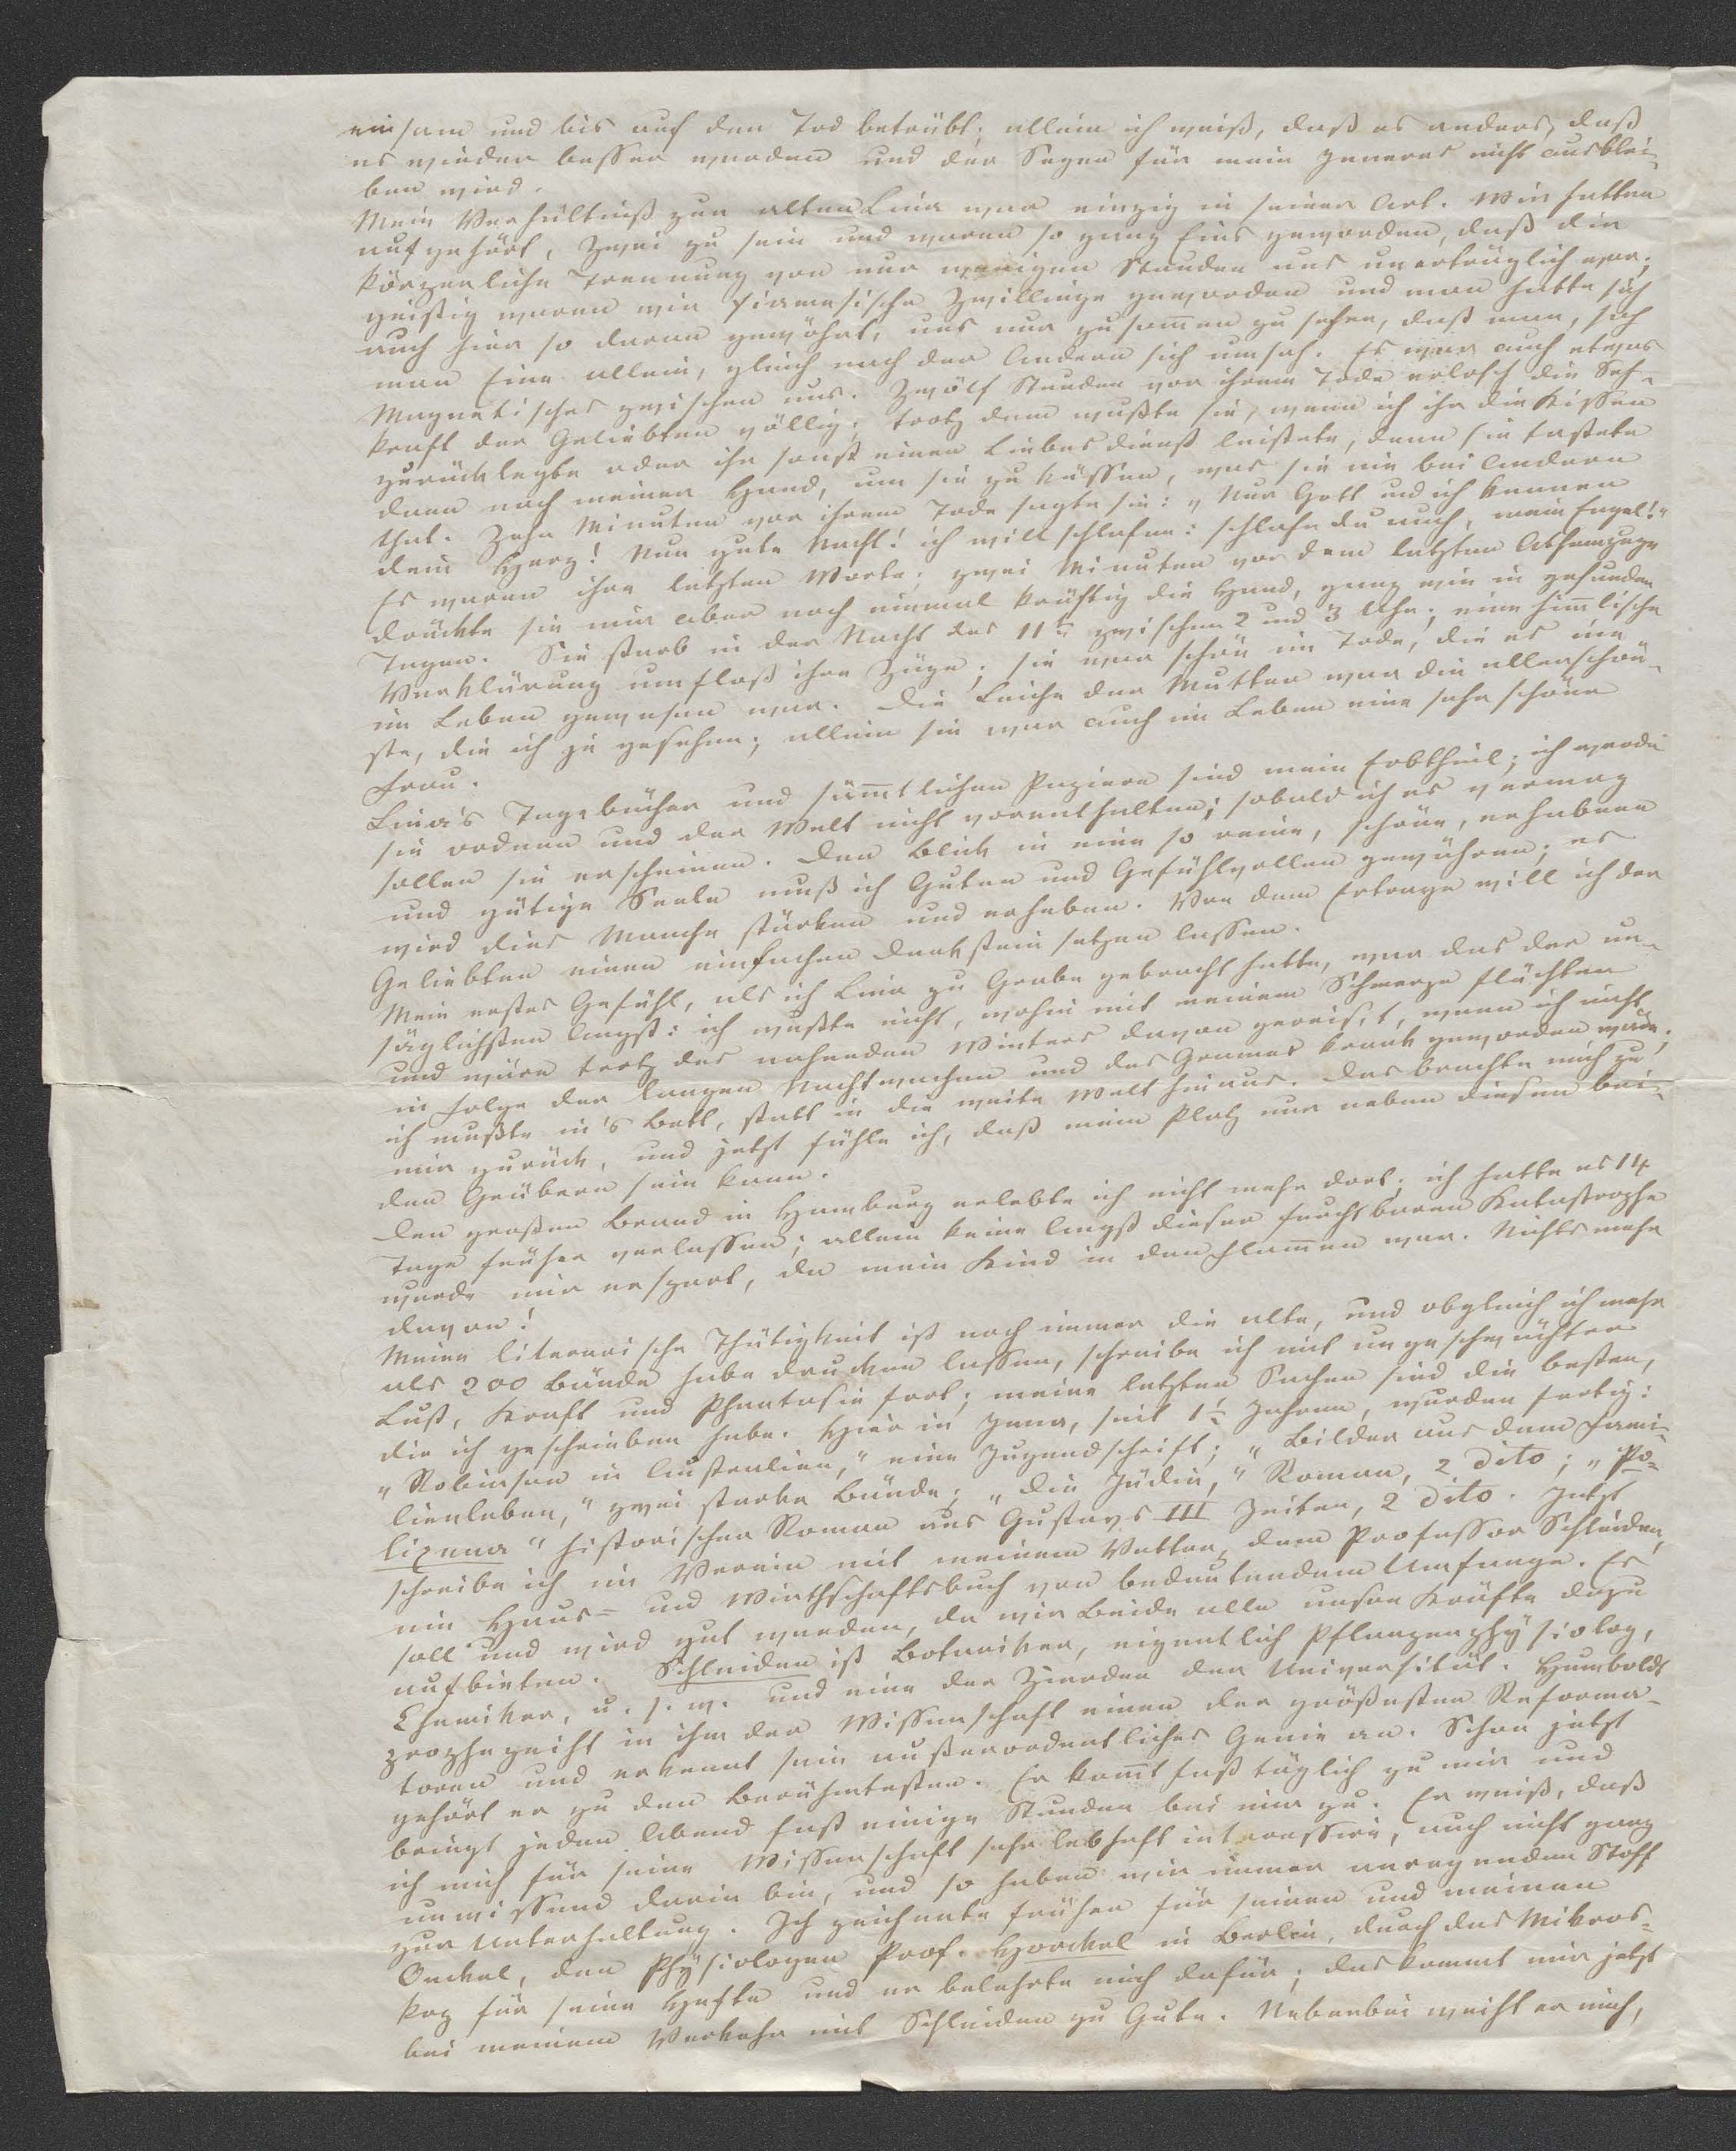 einsam und bis auf den Tod betrübt; allein ich weiß, daß es anders, daß
es wieder besser werden und der Segen für mein Inneres nicht ausblei-
ben wird.
Mein Verhältniß zur alten Lina war einzig in seiner Art. Wir hatten
aufgehört, Zwei zu sein und waren so ganz Eins geworden, daß die
körperliche Trennung von nur wenigen Stunden uns unerträglich war;
geistig waren wir siamesische Zwillinge geworden und man hatte sich
auch hier so daran gewöhnt, uns nur zusam̅en zu sehen, daß man, sah
man Eine allein, gleich nach der Andern sich umsah. Es war auch etwas
Magnetisches zwischen uns. Zwölf Stunden vor ihrem Tode erlosch die Seh-
kraft der Geliebten völlig; trotz dem wußte sie, wenn ich ihr die Kissen
zurücklegte oder ihr sonst einen Liebesdienst leistete, denn sie tastete
dann nach meiner Hand, um sie zu küssen, was sie nie bei Andern
that. Zehn Minuten vor ihrem Tode sagte sie: „Nur Gott und ich kennen
dein Herz! Nun gute Nacht! ich will schlafen: schlafe du auch, mein Engel!"
Es waren ihre letzten Worte; zwei Minuten vor dem letzten Athemzuge
drückte sie mir aber noch einmal kräftig die Hand, ganz wie in gesunden
Tagen. Sie starb in der Nacht des 11ten zwischen 2 und 3 Uhr; eine him̅lische
Verklärung umfloß ihre Züge; sie war schön im Tode, die es nie
im Leben gewesen war. Die Leiche der Mutter war die allerschön-
ste, die ich je gesehen; allein sie war auch im Leben eine sehr schöne
Frau.
Lina's Tagebücher und säm̅tlichen Papiere sind mein Erbtheil; ich werde
sie ordnen und der Welt nicht vorenthalten; sobald ich es vermag
sollen sie erscheinen. Den Blick in eine so reine, schöne, erhabene
und gütige Seele muß ich Guten und Gefühlvollen gewähren; es
wird dies Manche stärken und erheben. Von dem Ertrage will ich der
Geliebten einen einfachen Denkstein setzen lassen.
Mein erstes Gefühl, als ich Lina zu Grabe gebracht hatte, war das der un-
säglichsten Angst: ich wußte nicht, wohin mit meinem Schmerze flüchten
und wäre trotz des nahenden Winters davon gereis't, wenn ich nicht
in Folge der langen Nachtwachen und des Grames krank geworden wäre;
ich mußte in's Bett, statt in die weite Welt hinaus. Das brachte mich zu
mir zurück, und jetzt fühle ich, daß mein Platz nur neben diesen bei-
den Gräbern sein kann.
Den großen Brand in Hamburg erlebte ich nicht mehr dort; ich hatte es 14
Tage früher verlassen; allein keine Angst dieser furchtbaren Katastrophe
wurde mir erspart, da mein Kind in den Flam̅en war. Nichts mehr
davon!
Meine literarische Thätigkeit ist noch immer die alte, und obgleich ich mehr
als 200 Bände habe drucken lassen, schreibe ich mit ungeschwächter
Lust, Kraft und Phantasie fort; meine letzten Sachen sind die besten,
die ich geschrieben habe. Hier in Jena, seit 1½ Jahren, wurden fertig:
„Robinson in Australien," eine Jugendschrift; „Bilder aus dem Fami-
lienleben," zwei starke Bände; „die Jüdin," Roman, 2 dito; „Po-
lixena" historischer Roman aus Gustavs III Zeiten, 2 dito. Jetzt
schreibe ich im Verein mit meinem Vetter, dem Professor Schleiden,
ein Haus- und Wirthschaftsbuch von bedeutendem Umfange. Es
soll und wird gut werden, da wir Beide alle unsre Kräfte dazu
aufbieten. Schleiden ist Botaniker, eigentlich Pflanzenphysiolog,
Chemiker, u. s. w. und eine der Zierden der Universität. Humboldt
prophezeiht in ihm der Wissenschaft einen der größesten Reforma-
toren und erkennt sein außerordentliches Genie an. Schon jetzt
gehört er zu den Berühmtesten. Er kom̅t fast täglich zu mir und
bringt jeden Abend fast einige Stunden bei mir zu. Er weiß, daß
ich mich für seine Wissenschaft sehr lebhaft interessire, auch nicht ganz
unwissend darin bin, und so haben wir immer anregenden Stoff
zur Unterhaltung. Ich zeichnete früher für seinen und meinen
Onckel, den Physiologen Prof. Horckel in Berlin, durch das Mikros-
kop für seine Hefte und er belehrte mich dafür; das kommt mir jetzt
bei meinem Verkehr mit Schleiden zu Gute. Nebenbei weiht er mich,